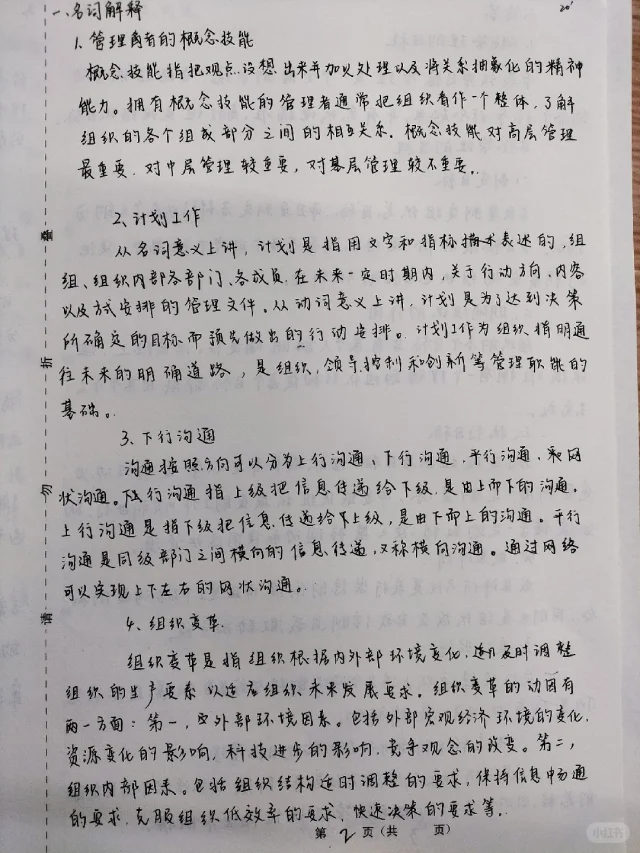 一、名词解释
20'
1. 管理者的概念技能
概念技能指把观点设想出来并加以处理以及将关系抽象化的精神
能力。拥有概念技能的管理者通常把组织看作一个整体，了解
组织的各个组成部分之间的相互关系。概念技能对高层管理
最重要，对中层管理较重要，对基层管理较不重要。
2、计划工作
从名词意义上讲，计划是指用文字和指标描述表达的，组
组、组织内部各部门、各成员，在未来一定时期内，关于行动方向、内容
以及方式安排的管理文件。从动词意义上讲，计划是为了达到决策
所确定的目标而预先做出的行动安排。计划工作为组织指明通
往未来的明确道路，是组织，领导控制和创新等管理职能的
基础。
3、下行沟通
沟通按照方向可以分为上行沟通、下行沟通，平行沟通，和网
状沟通。下行沟通指上级把信息传递给下级，是由上而下的沟通。
上行沟通是指下级把信息传递给上级，是由下而上的沟通。平行
沟通是同级部门之间横向的信息传递，又称横向沟通。通过网络
可以实现上下左右的网状沟通。
4、组织变革
组织变革是指组织根据内外部环境变化，及时调整
组织的生产要素以适应组织未来发展要求。组织变革的动因有
两方面：第一，外部环境因素。包括外部宏观经济环境的变化，
资源变化的影响，科技进步的影响，竞争观念的改变。第二，
组织内部因素。包括组织结构适时调整的要求，保持信息中畅通
的要求，克服组织低效率的要求，快速决策的要求等。
第 2 页（共 页）
叠
折
勿
请
小红书